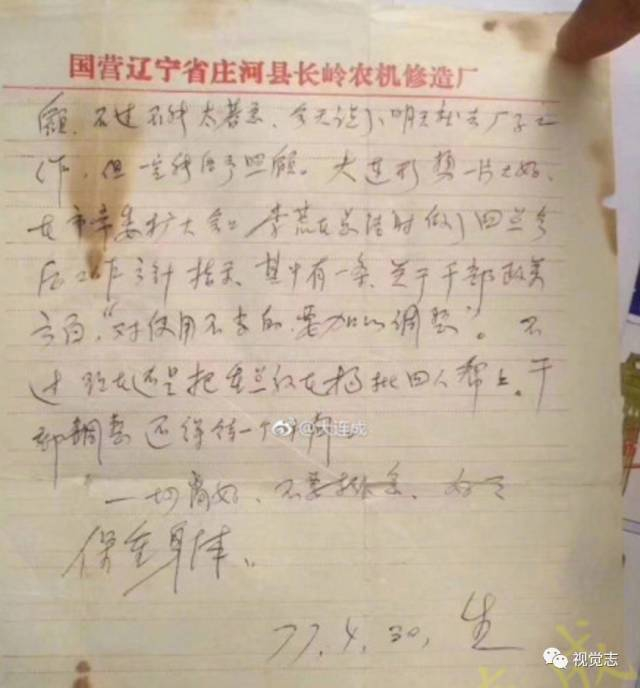 国营辽宁省庄河县长岭农机修造厂
顾，不过不能太着急，今天说了，明天就去厂子工
作，但一定能给予照顾。大连形势一片大好，
在市常委扩大会上 李荒在总结时做了四点今
后工作方针指示，其中有一条，关于干部政策
方面，“对使用不当的，要加以调整”。不
过现在还是把重点放在揭批四人帮上，干
部调整还得待一个时期
@大连成
一切皆好，不要挂念，好々
保重身体。
77.4.30，生
视觉志